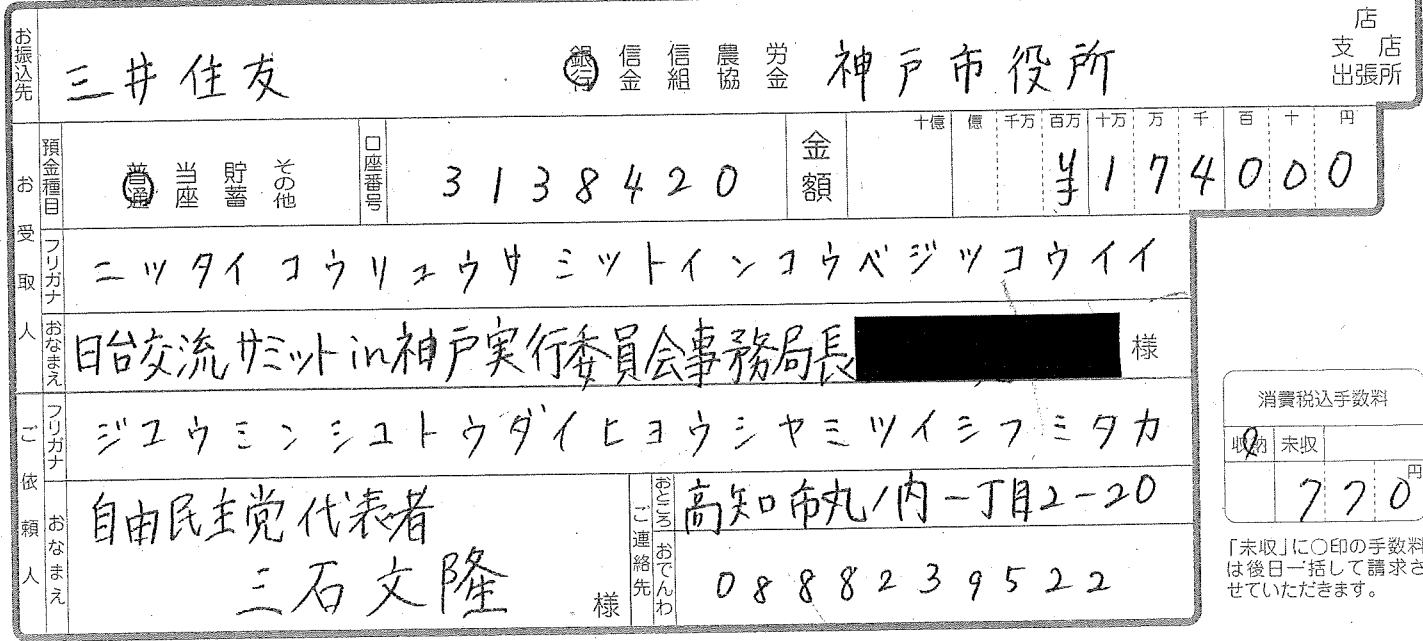 お振込先 三井住友 銀行 信金 信組 農協 労金 神戸市役所 店 支店 出張所
お受取人 預金種目 普通 当座 貯蓄 その他 口座番号 3138420 金額 十億 億 千万 百万 十万 万 千 百 十 円 ¥174000
フリガナ ニッタイコウリュウサミットインコウベジツコウイイ
おなまえ 日台交流サミットin神戸実行委員会事務局長 様
ご依頼人 フリガナ ジユウミンシユトウダイヒヨウシヤミツイシフミタカ
おなまえ 自由民主党代表者
三石文隆 様
ご連絡先 おところ 高知市丸ノ内一丁目2-20
おでんわ 0888239522
消費税込手数料
収納 未収
770円
「未収」に○印の手数料
は後日一括して請求さ
せていただきます。